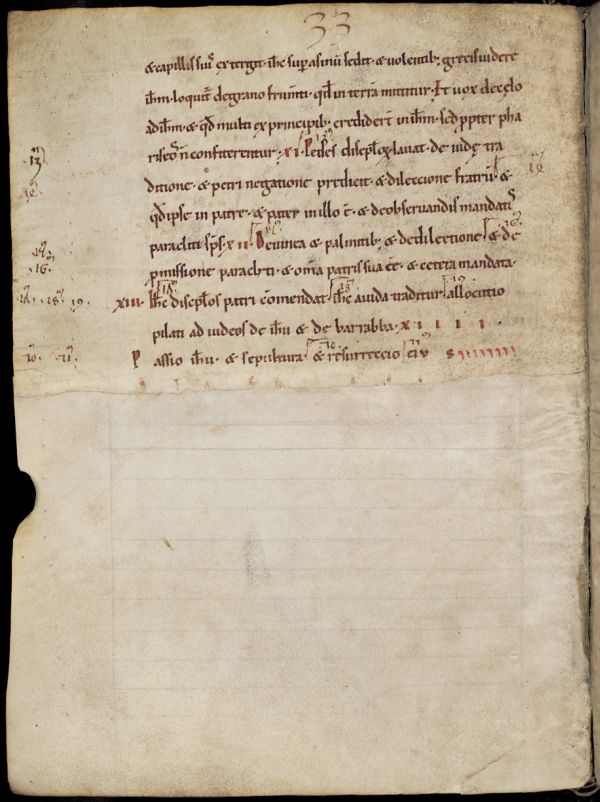 33
& capillis suis extergit · ihc sup asinū sedit · & volentib; grecis videre
ihm · loquit̄ de grano frumti · qd in terrā mittitur · Et vox de celo
ad ihm · & qd multi ex principib; credidert̄ in ihm · sed ppter pha
riseos n̄ confiterentur · xi · Pedes discplox lavat · de iude tra
13
ditione · & petri negatione predicit · & dileccione fratrū · &
qd ipse in patre · & pater in illo ē · & de observandis mandatis
paracliti sps · xii · De vinea & palmitib; & de dilectione · & de
16
pmissione paracliti · & om̄a patris sua ēē · & cetera mandata ·
18 19 · xiii · Ihc discplos patri c̄mendat · ihc a iuda traditur · allocutio
pilati ad iudeos de ihu & de barrabba · xiiii ·
Passio ihu · & sepultura · & resurreccio ei